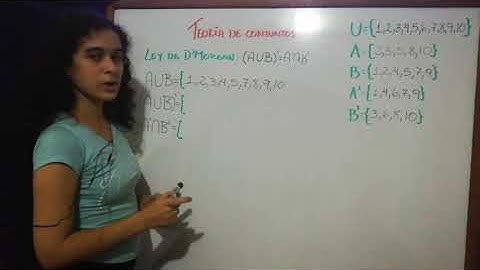 TEORÍA DE CONJUNTOS
LEY DE D'MORGAN: (AUB)'=A'∩B'
AUB={1,2,3,4,5,7,8,9,10
(AUB)'={
A'∩B'={
U={1,2,3,4,5,6,7,8,9,10}
A={2,3,5,8,10}
B={1,2,4,5,7,9}
A'={1,4,6,7,9}
B'={3,6,8,10}